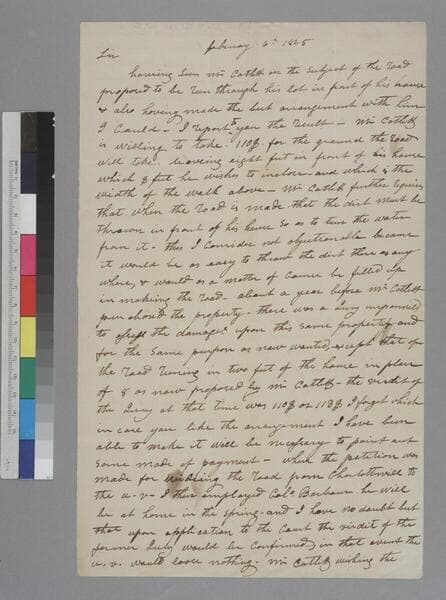 Sir February 6th 1825
having Seen Mr Catlett on the Subject of the Road
proposed to be Run through his lot in part of his house
& also having made the best arrangement with him
I Could - I report to you the Result - Mr Catlett
is willing to take 110$ for the ground the Road
will take. leaving eight feet in front of his house
which 8 feet he wishes to inclose. and which is the
width of the walk above - Mr Catlett further Requires
that when the Road is made that the dirt must be
thrown in front of his house So as to turn the water
from it - this I Consider not objectionable because
it would be as easy to throw the dirt there as any
where, & would as a matter of Course be filled up
in making the Road - about a year before Mr Catlett
purchased the property - there was a Jury impanneled
to assess the damages upon this Same property and
for the Same purpose as now wanted, except that of
the Road Runing in two feet of the house in place
of 8 as now proposed by Mr Catlett - the verdict of
the Jury at that time was 110$ or 118$ I forget which
in case you like the arrangement I have been
able to make it will be necessary to point out
Some mode of payment - when the petition was
made for widening the Road from Charlottesville to
the u. v - I then employed Colo Barbour he will
be at home in the Spring. and I have no doubt but
that upon application to the Court the virdit of the
former Jury would be Confirmed, in that event the
u. v. would loose nothing - Mr Catlett wishing the